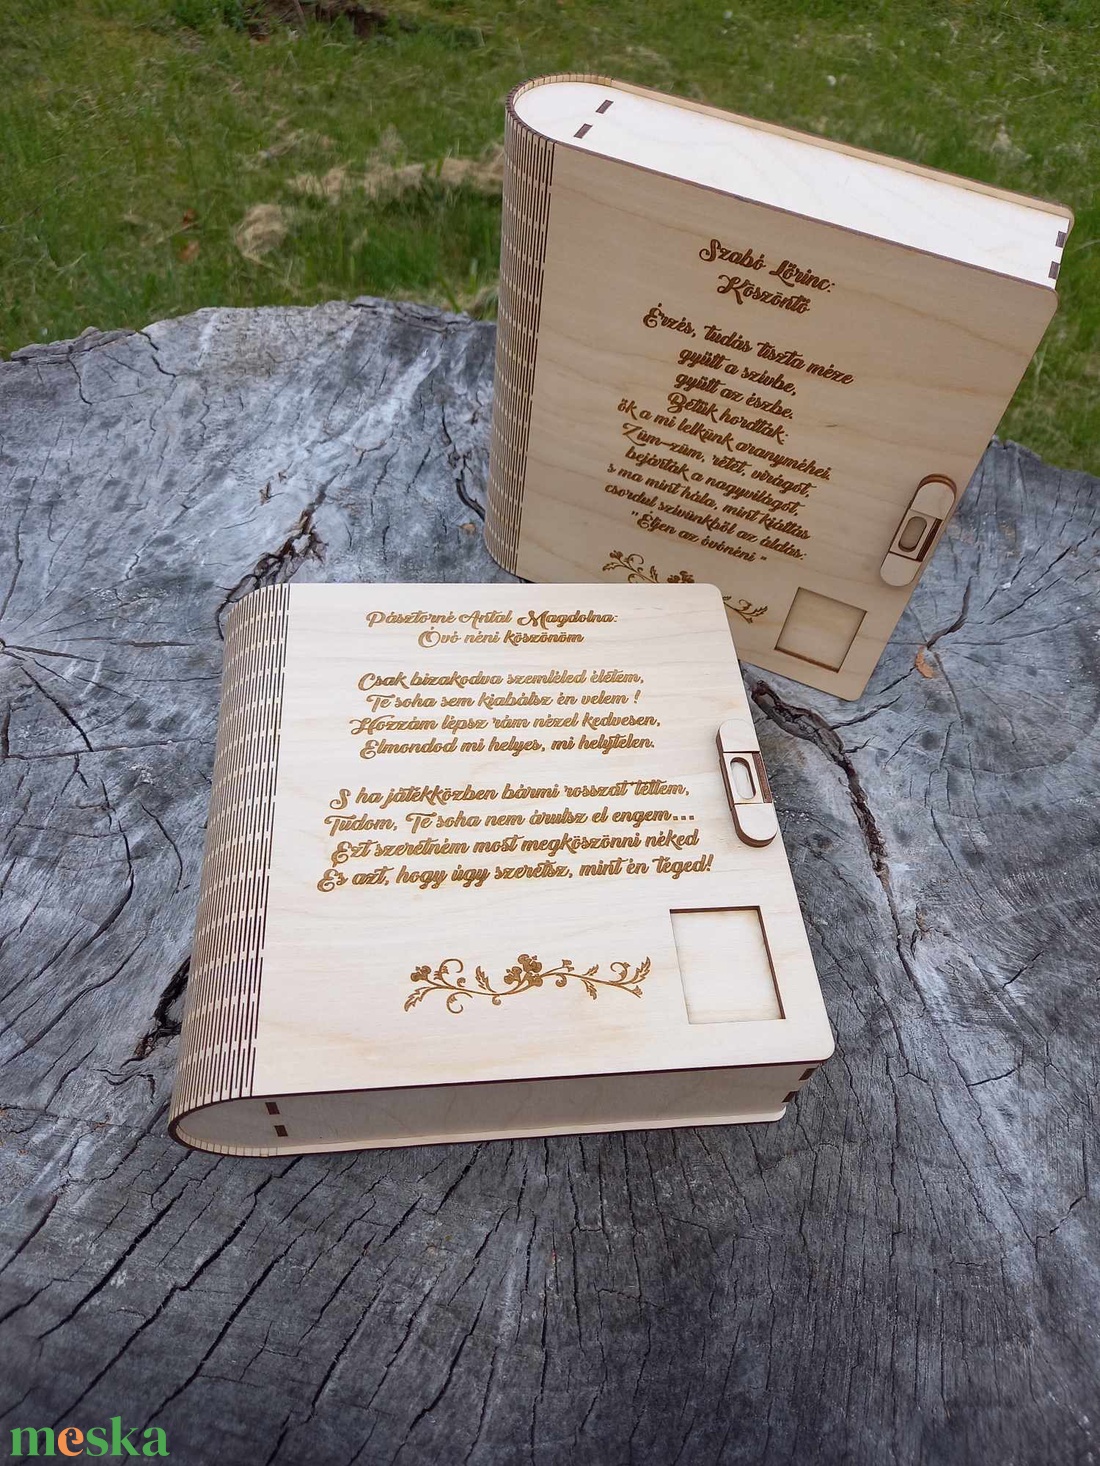 Szabó Lőrinc:
Köszöntő
Érzés, tudás tiszta méze
gyűlt a szívbe,
gyűlt az észbe.
Betűk hordták:
ők a mi lelkünk aranyméhei.
Züm-züm, rétet, virágot,
bejárták a nagyvilágot,
s ma mint hála, mint kiáltás
csordul szívünkből az áldás:
"Éljen az óvónéni"
Pásztorné Antal Magdolna:
Óvó néni köszönöm
Csak bizakodva szemléled életem,
Te soha sem kiabálsz én velem !
Hozzám lépsz rám nézel kedvesen,
Elmondod mi helyes, mi helytelen.
S ha játékközben bármi rosszat tettem,
Tudom, Te soha nem árulsz el engem...
Ezt szeretném most megköszönni néked
És azt, hogy úgy szeretsz, mint én téged!
meska